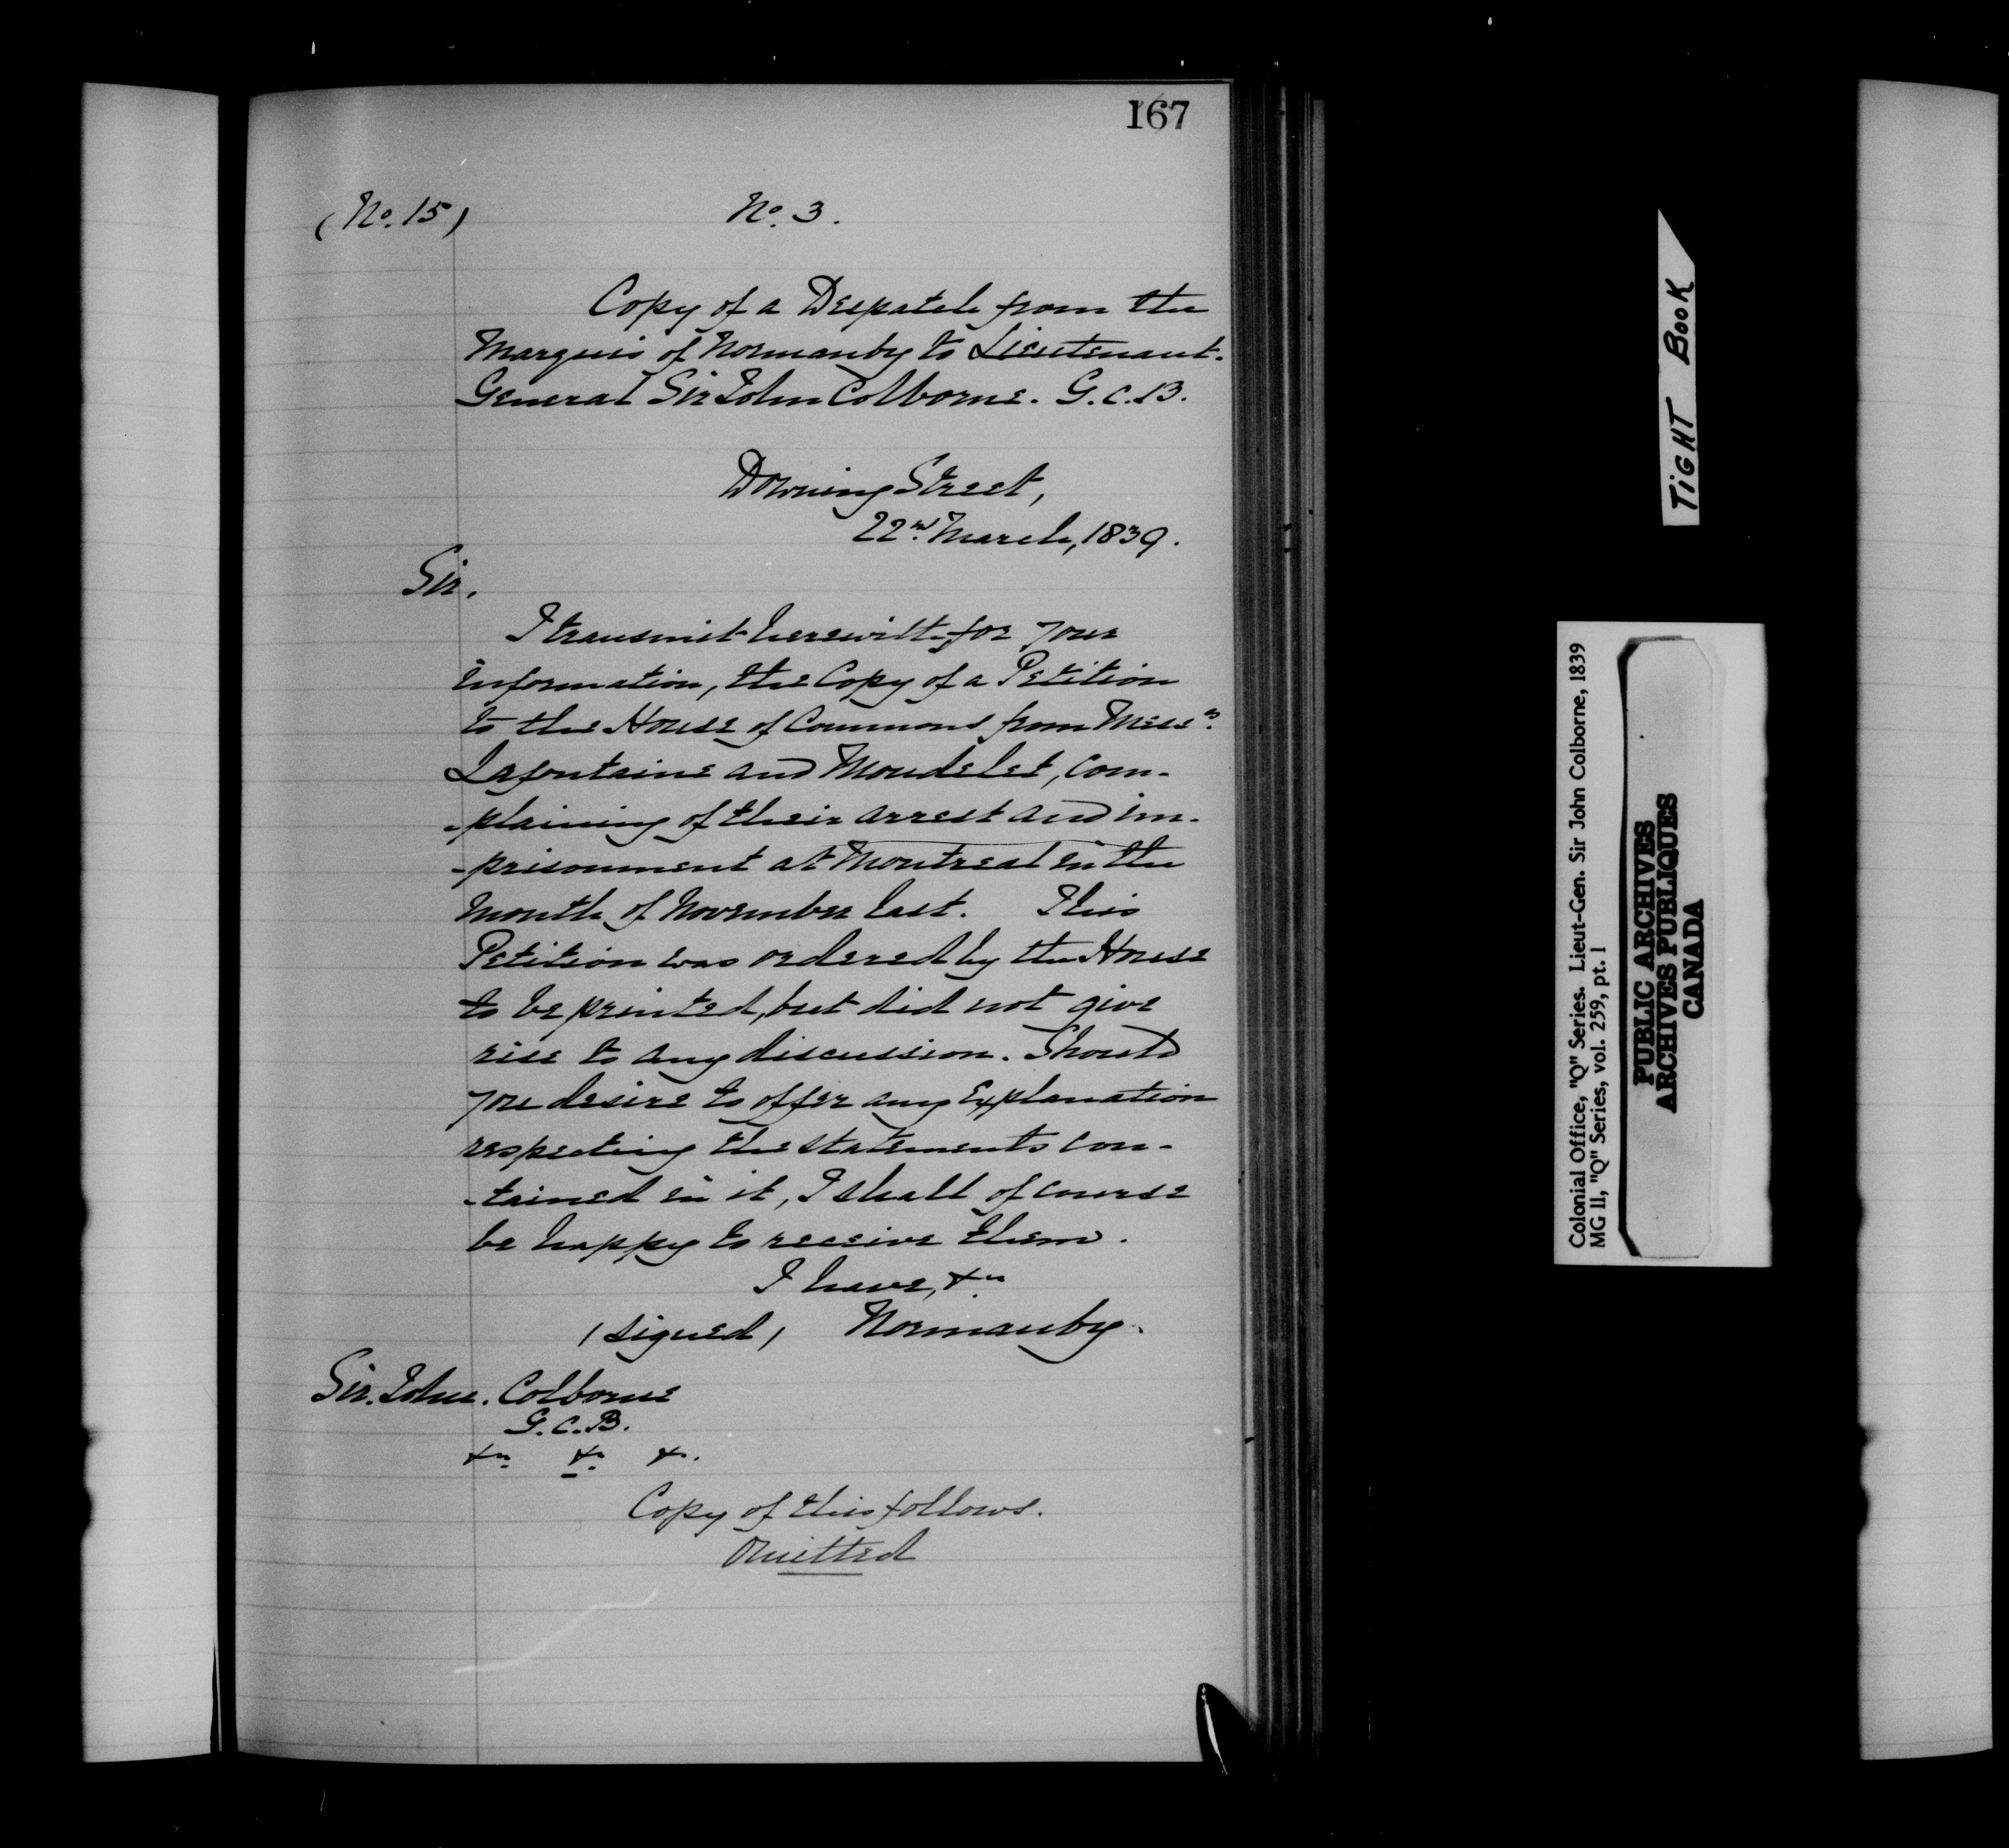 167
(No. 15) No. 3.
Copy of a Despatch from the
Marquis of Normanby to Lieutenant-
General Sir John Colborne. G.C.B.
Downing Street,
22nd March, 1839.
Sir.
I transmit herewith, for your
information, the Copy of a Petition
to the House of Commons from Messrs.
Lafontaine and Mondelet, com-
-plaining of their arrest and im-
-prisonment at Montreal in the
month of November last. This
Petition was ordered by the House
to be printed, but did not give
rise to any discussion. Should
you desire to offer any Explanation
respecting the statements con-
-tained in it, I shall of course
be happy to receive them.
I have, &c.
(signed) Normanby.
Sir. John. Colborne
G.C.B.
&c. &c. &c.
Copy of this follows.
Omitted
TIGHT BOOK
Colonial Office, "Q" Series. Lieut-Gen. Sir John Colborne, 1839
MG 11, "Q" Series, vol. 259, pt. 1
PUBLIC ARCHIVES
ARCHIVES PUBLIQUES
CANADA